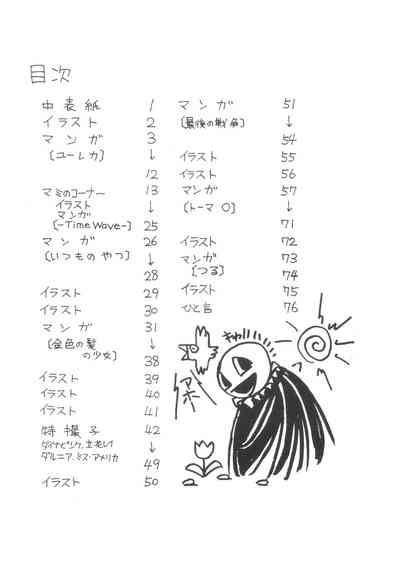 目次
中表紙 1
イラスト 2
マンガ 3
〔ユーレカ〕 ↓
12
マミのコーナー 13
イラスト
マンガ
〔-Time Wave-〕 25
マンガ 26
〔いつものやつ〕 ↓
28
イラスト 29
イラスト 30
マンガ 31
〔金色の髪 ↓
の少女〕 38
イラスト 39
イラスト 40
イラスト 41
特撮子 42
ダイナピンク, 立花レイ ↓
ダルニア, ミス・アメリカ 49
イラスト 50
マンガ 51
〔最後の戦争〕 ↓
54
イラスト 55
イラスト 56
マンガ 57
〔トーマ O〕 ↓
71
イラスト 72
マンガ 73
〔つる〕 74
イラスト 75
ひと言 76
アホ